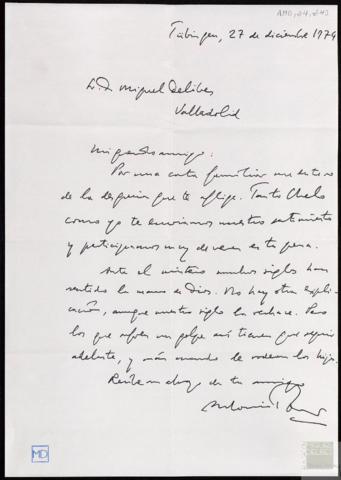 AMD, 64, 243
Tübingen, 27 de diciembre 1974
D. Miguel Delibes
Valladolid
Mi querido amigo:
Por una carta familiar me entero
de la desgracia que te aflige. Tanto Chelo
como yo te enviamos nuestro sentimiento
y participamos muy de veras en tu pena.
Ante el misterio muchos siglos han
sentido la mano de Dios. No hay otra expli-
cación, aunque nuestro siglo la rechace. Pero
los que sufren un golpe así tienen que seguir
adelante, y más cuando le rodean los hijos.
Recibe un abrazo de tu amigo
Antonio
MD